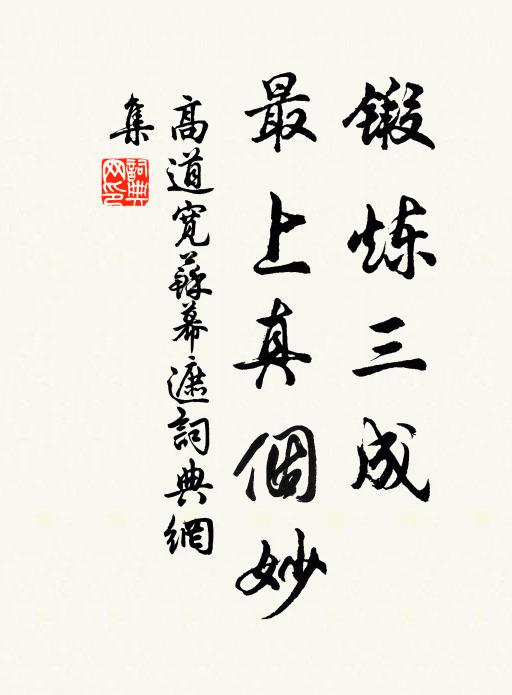 鍛炼三成
最上真個妙
高道寬蘇幕遮詞典網
集
詞典
网印